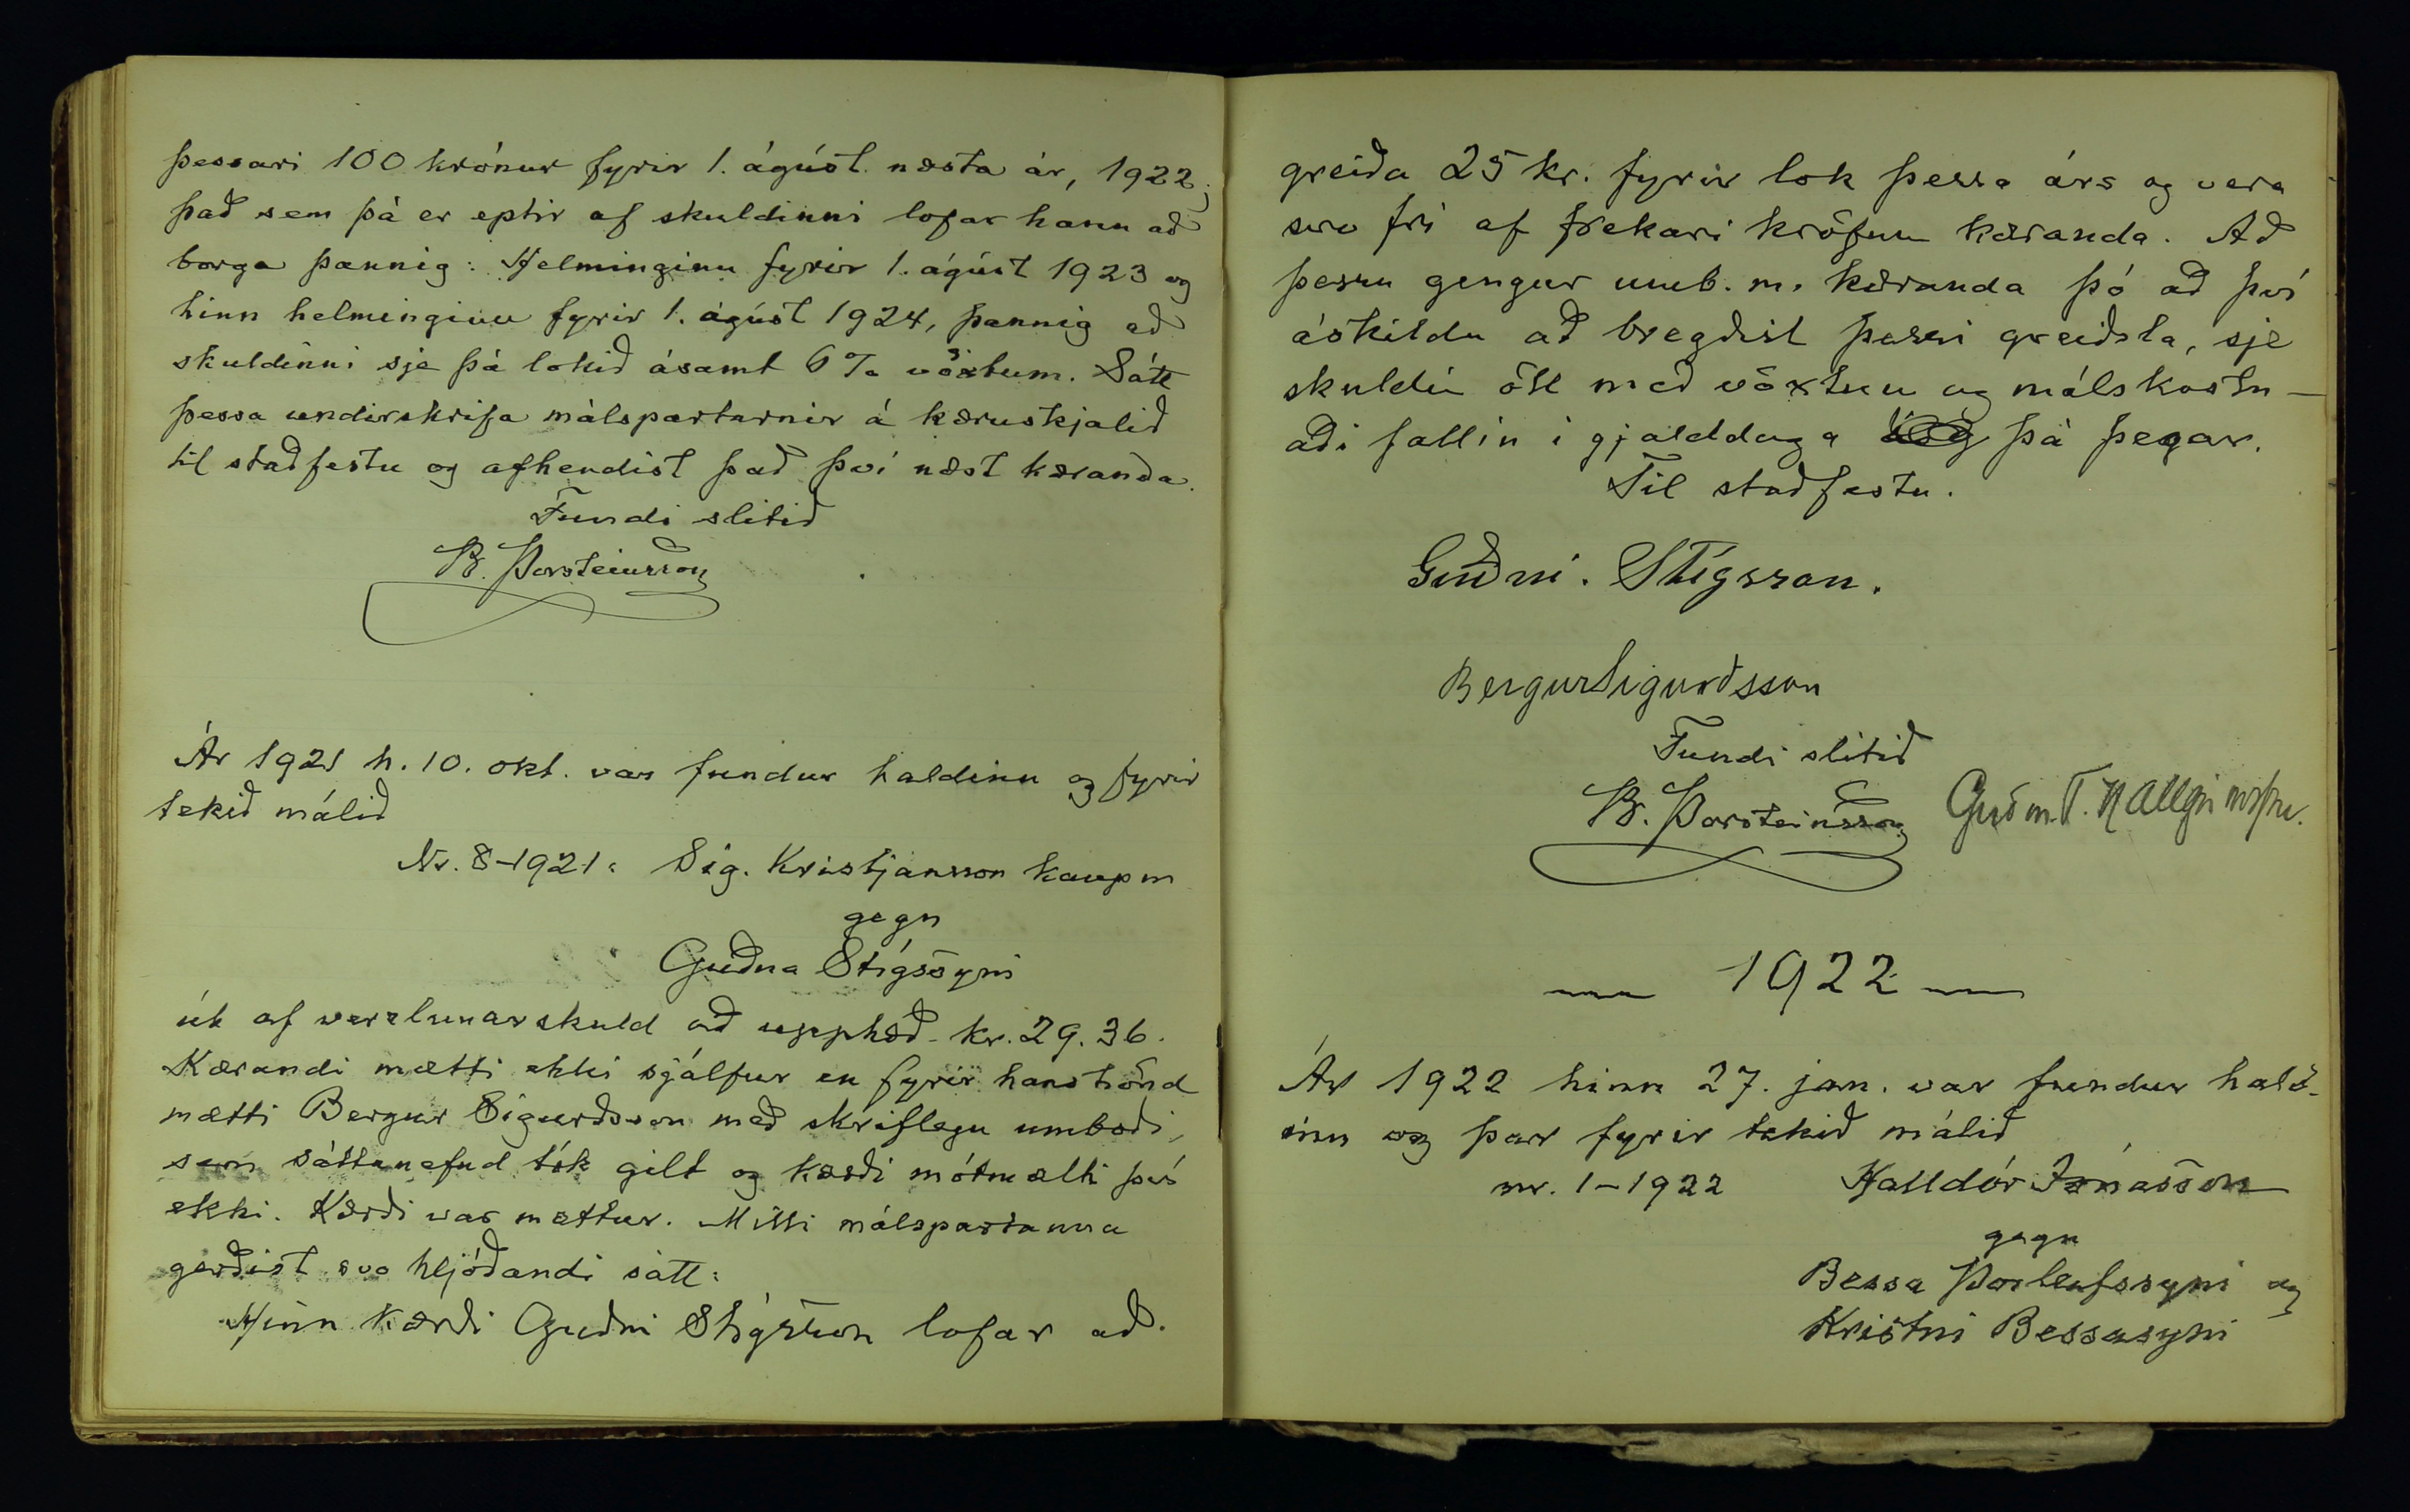 þessari 100 krónur fyrir 1. ágúst næsta ár, 1922;
það sem þá er eptir af skuldinni lofar hann að
borga þannig: Helminginn fyrir 1. ágúst 1923 og
hinn helminginn fyrir 1. ágúst 1924, þannig að
skuldinni sje þá lokið ásamt 6% vöxtum. Sátt
þessa undirskrifa málspartarnir á kæruskjalið
til staðfestu og afhendist það því næst kæranda.
Fundi slitið
B. Þorsteinsson
Ár 1921 h. 10. okt. var fundur haldinn og fyrir
tekið málið
Nr. 8-1921: Sig. Kristjansson kaupm
gegn
Guðna Stígssyni
út af verzlunarskuld að upphæð kr. 29.36.
Kærandi mætti ekki sjálfur en fyrir hans hönd
mætti Bergur Sigurðsson með skriflegu umboði,
sem sáttanefnd tók gilt og kærði mótmælti því
ekki. Kærði var mættur. Milli málspartanna
gerðist svo hljóðandi sátt:
Hinn kærði Guðni Stígsson lofar að
greiða 25 kr. fyrir lok þessa árs og vera
svo frí af frekari kröfum kæranda. Að
þessu gengur umb.m. kæranda þó að því
áskildu að bregðist þessi greiðsla, sje
skuldin öll með vöxtum og málskostn-
aði fallin í gjalddaga þá þegar.
Til staðfestu.
Guðni. Stígsson.
Bergur Sigurðsson
Fundi slitið
B. Þorsteinsson Guðm. T. Hallgrímsson.
1922
Ár 1922 hinn 27. jan. var fundur hald-
inn og þar fyrir tekið málið
nr. 1-1922 Halldór Jónasson
gegn
Bessa Þorleifssyni og
Kristni Bessasyni